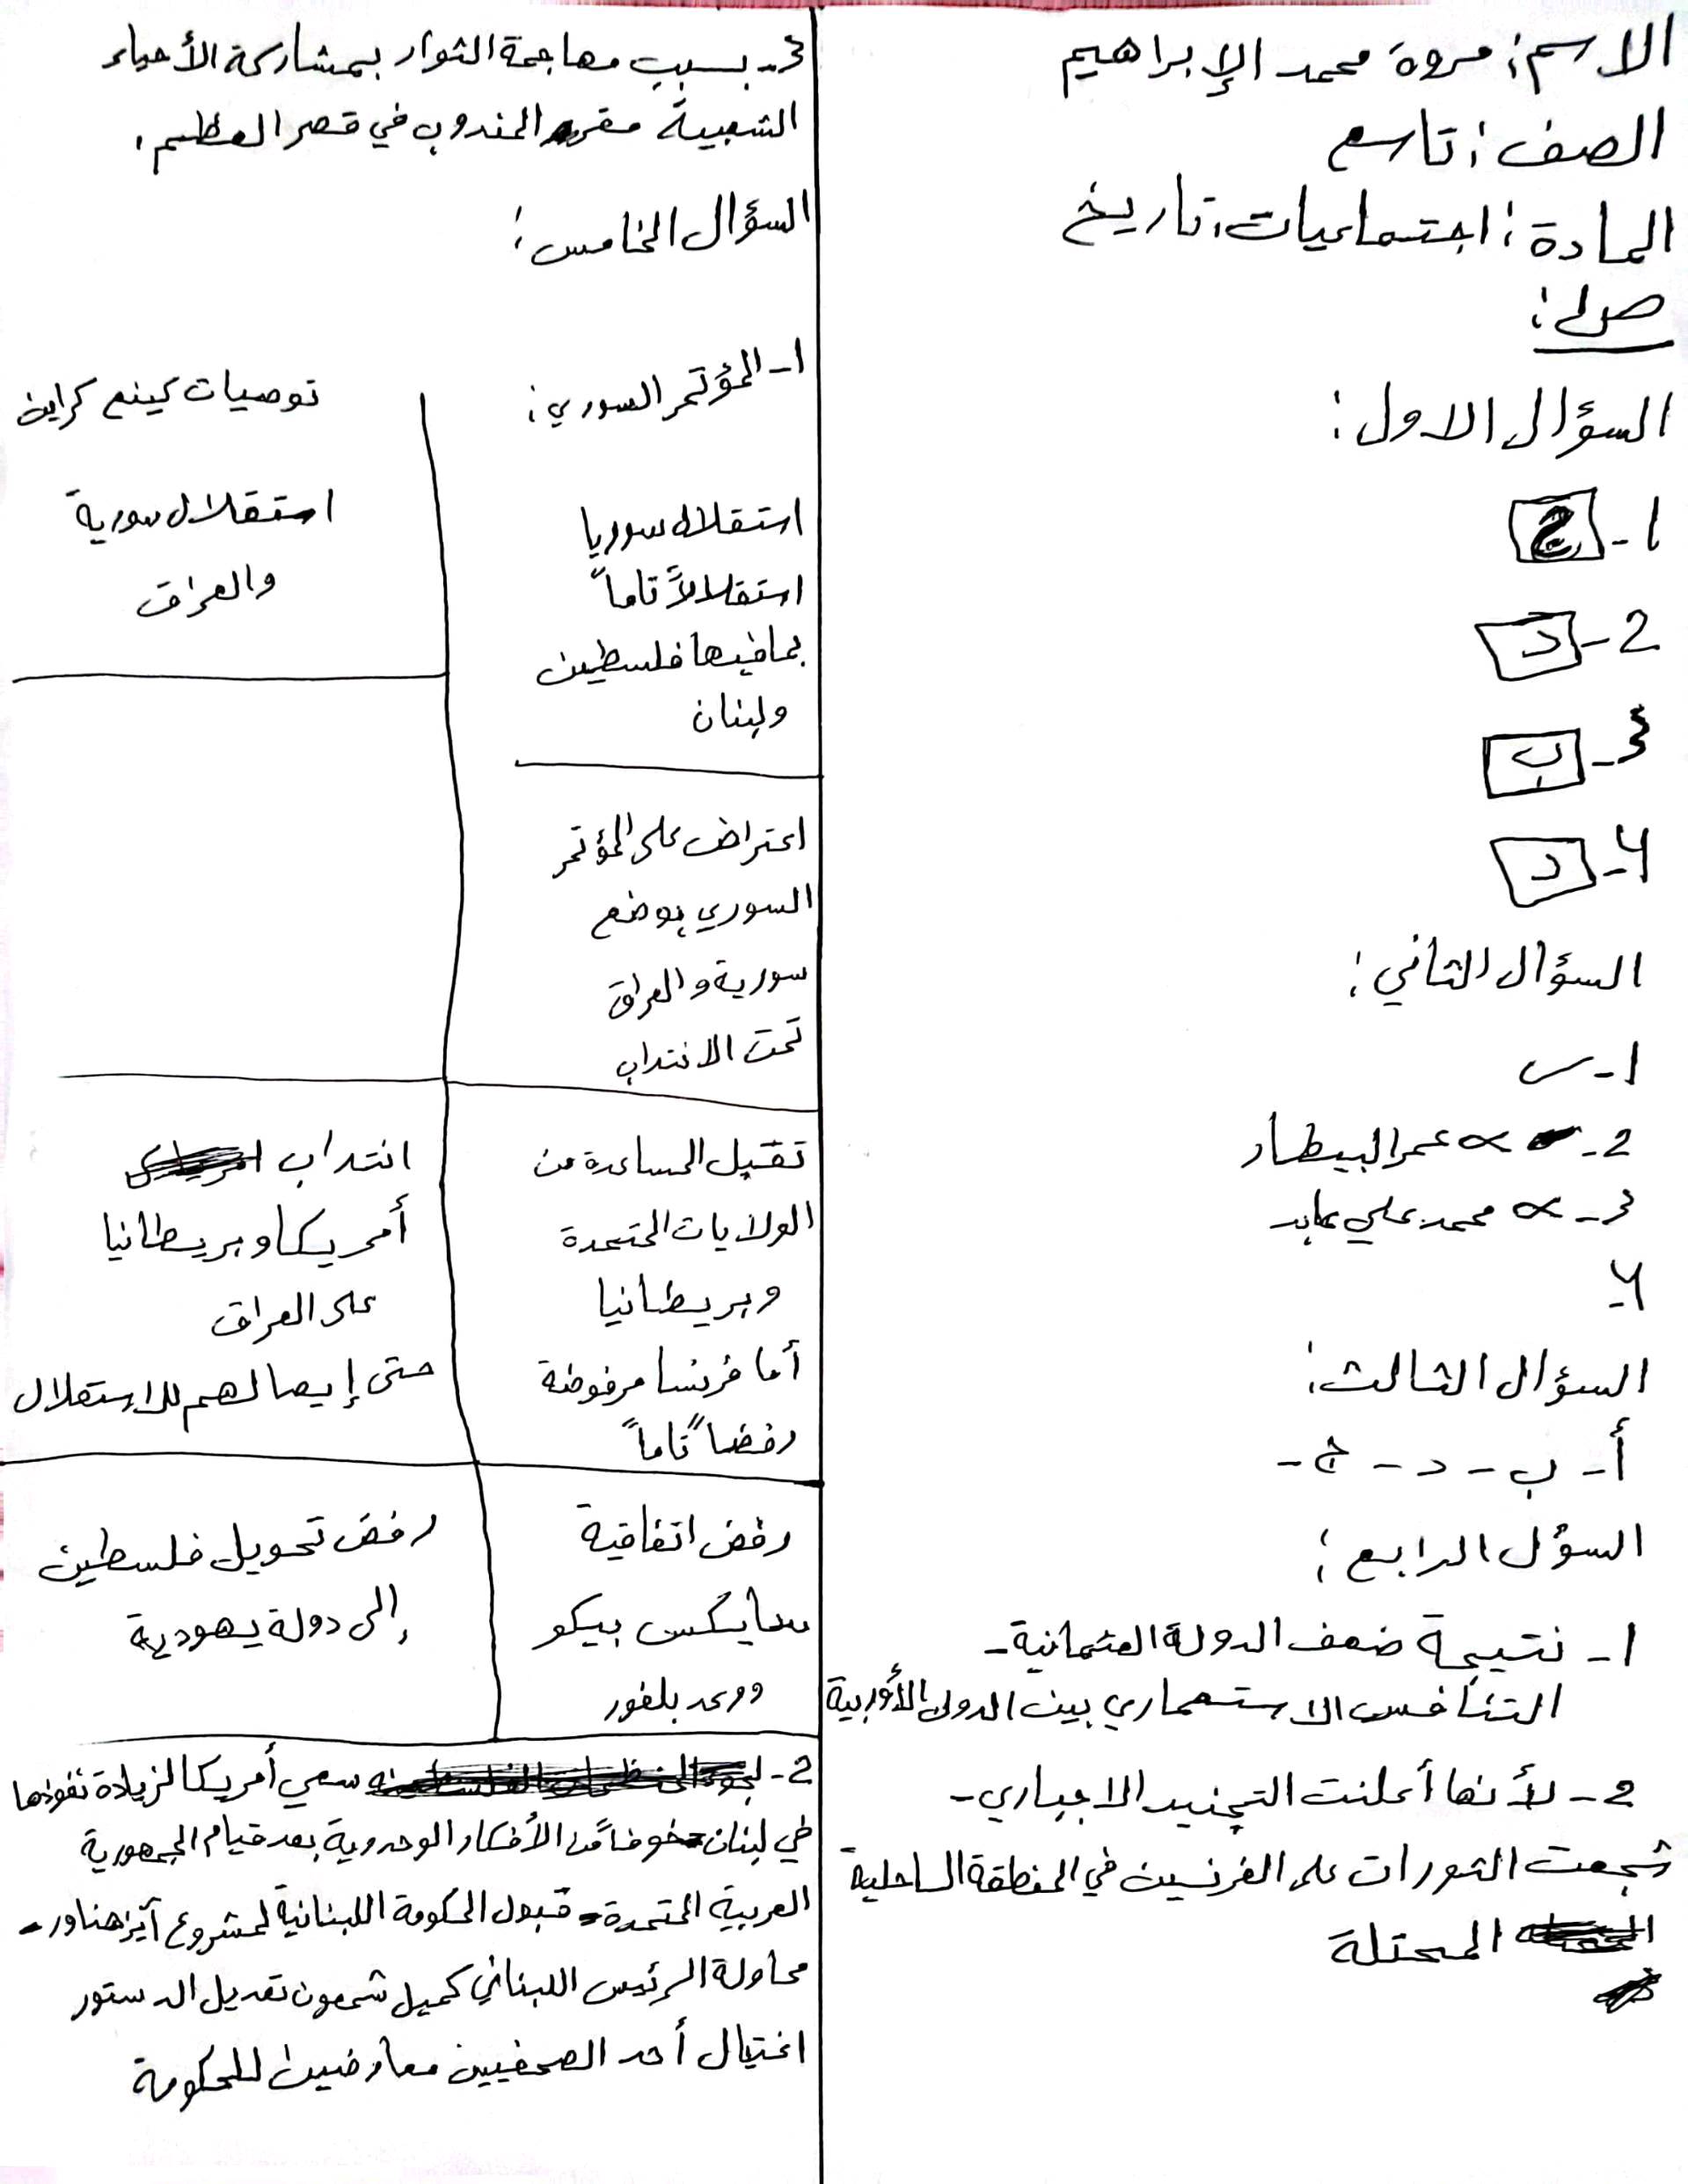 الاسم: مروة محمد الإبراهيم
الصف: تاسع
المادة: اجتماعيات، تاريخ
السؤال الاول:
1- ج
2- د
3- ب
4- د
السؤال الثاني:
1- س
2- عمر البيطار
3- محمد علي عابد
4-
السؤال الثالث:
أ- ب- د- ج-
السؤل الرابع:
1- نتيجة ضعف الدولة العثمانية-
التنافس الاستعماري بين الدول الأوربية
2- لأنها أعلنت التجنيد الاجباري-
شجعت الثورات على الفرنسين في المنطقة الساحلية
المحتلة
3- بسبب مهاجمة الثوار بمشاركة الأحياء
الشعبية مقر المندوب في قصر العظم.
السؤال الخامس:
1- المؤتمر السوري:
استقلال سوريا
استقلالاً تاماً
بمافيها فلسطين
ولبنان
اعتراض على المؤتمر
السوري بوضع
سورية والعراق
تحت الانتداب
تقبل المساعدة من
الولايات المتحدة
وبريطانيا
أما فرنسا مرفوضة
رفضاً تاماً
رفض اتفاقية
سايكس بيكو
ووعد بلفور
توصيات كينغ كراين
استقلال سورية
والعراق
انتداب
أمريكا وبريطانيا
على العراق
حتى إيصالهم للاستقلال
رفض تحويل فلسطين
إلى دولة يهودية
2- سعي أمريكا لزيادة نفوذها
في لبنان - خوفاً من الأفكار الوحدوية بعد قيام الجمهورية
العربية المتحدة - قبول الحكومة اللبنانية لمشروع آيزهناور -
محاولة الرئيس اللبناني كميل شمعون تعديل الدستور
اغتيال أحد الصحفيين معارضين للحكومة